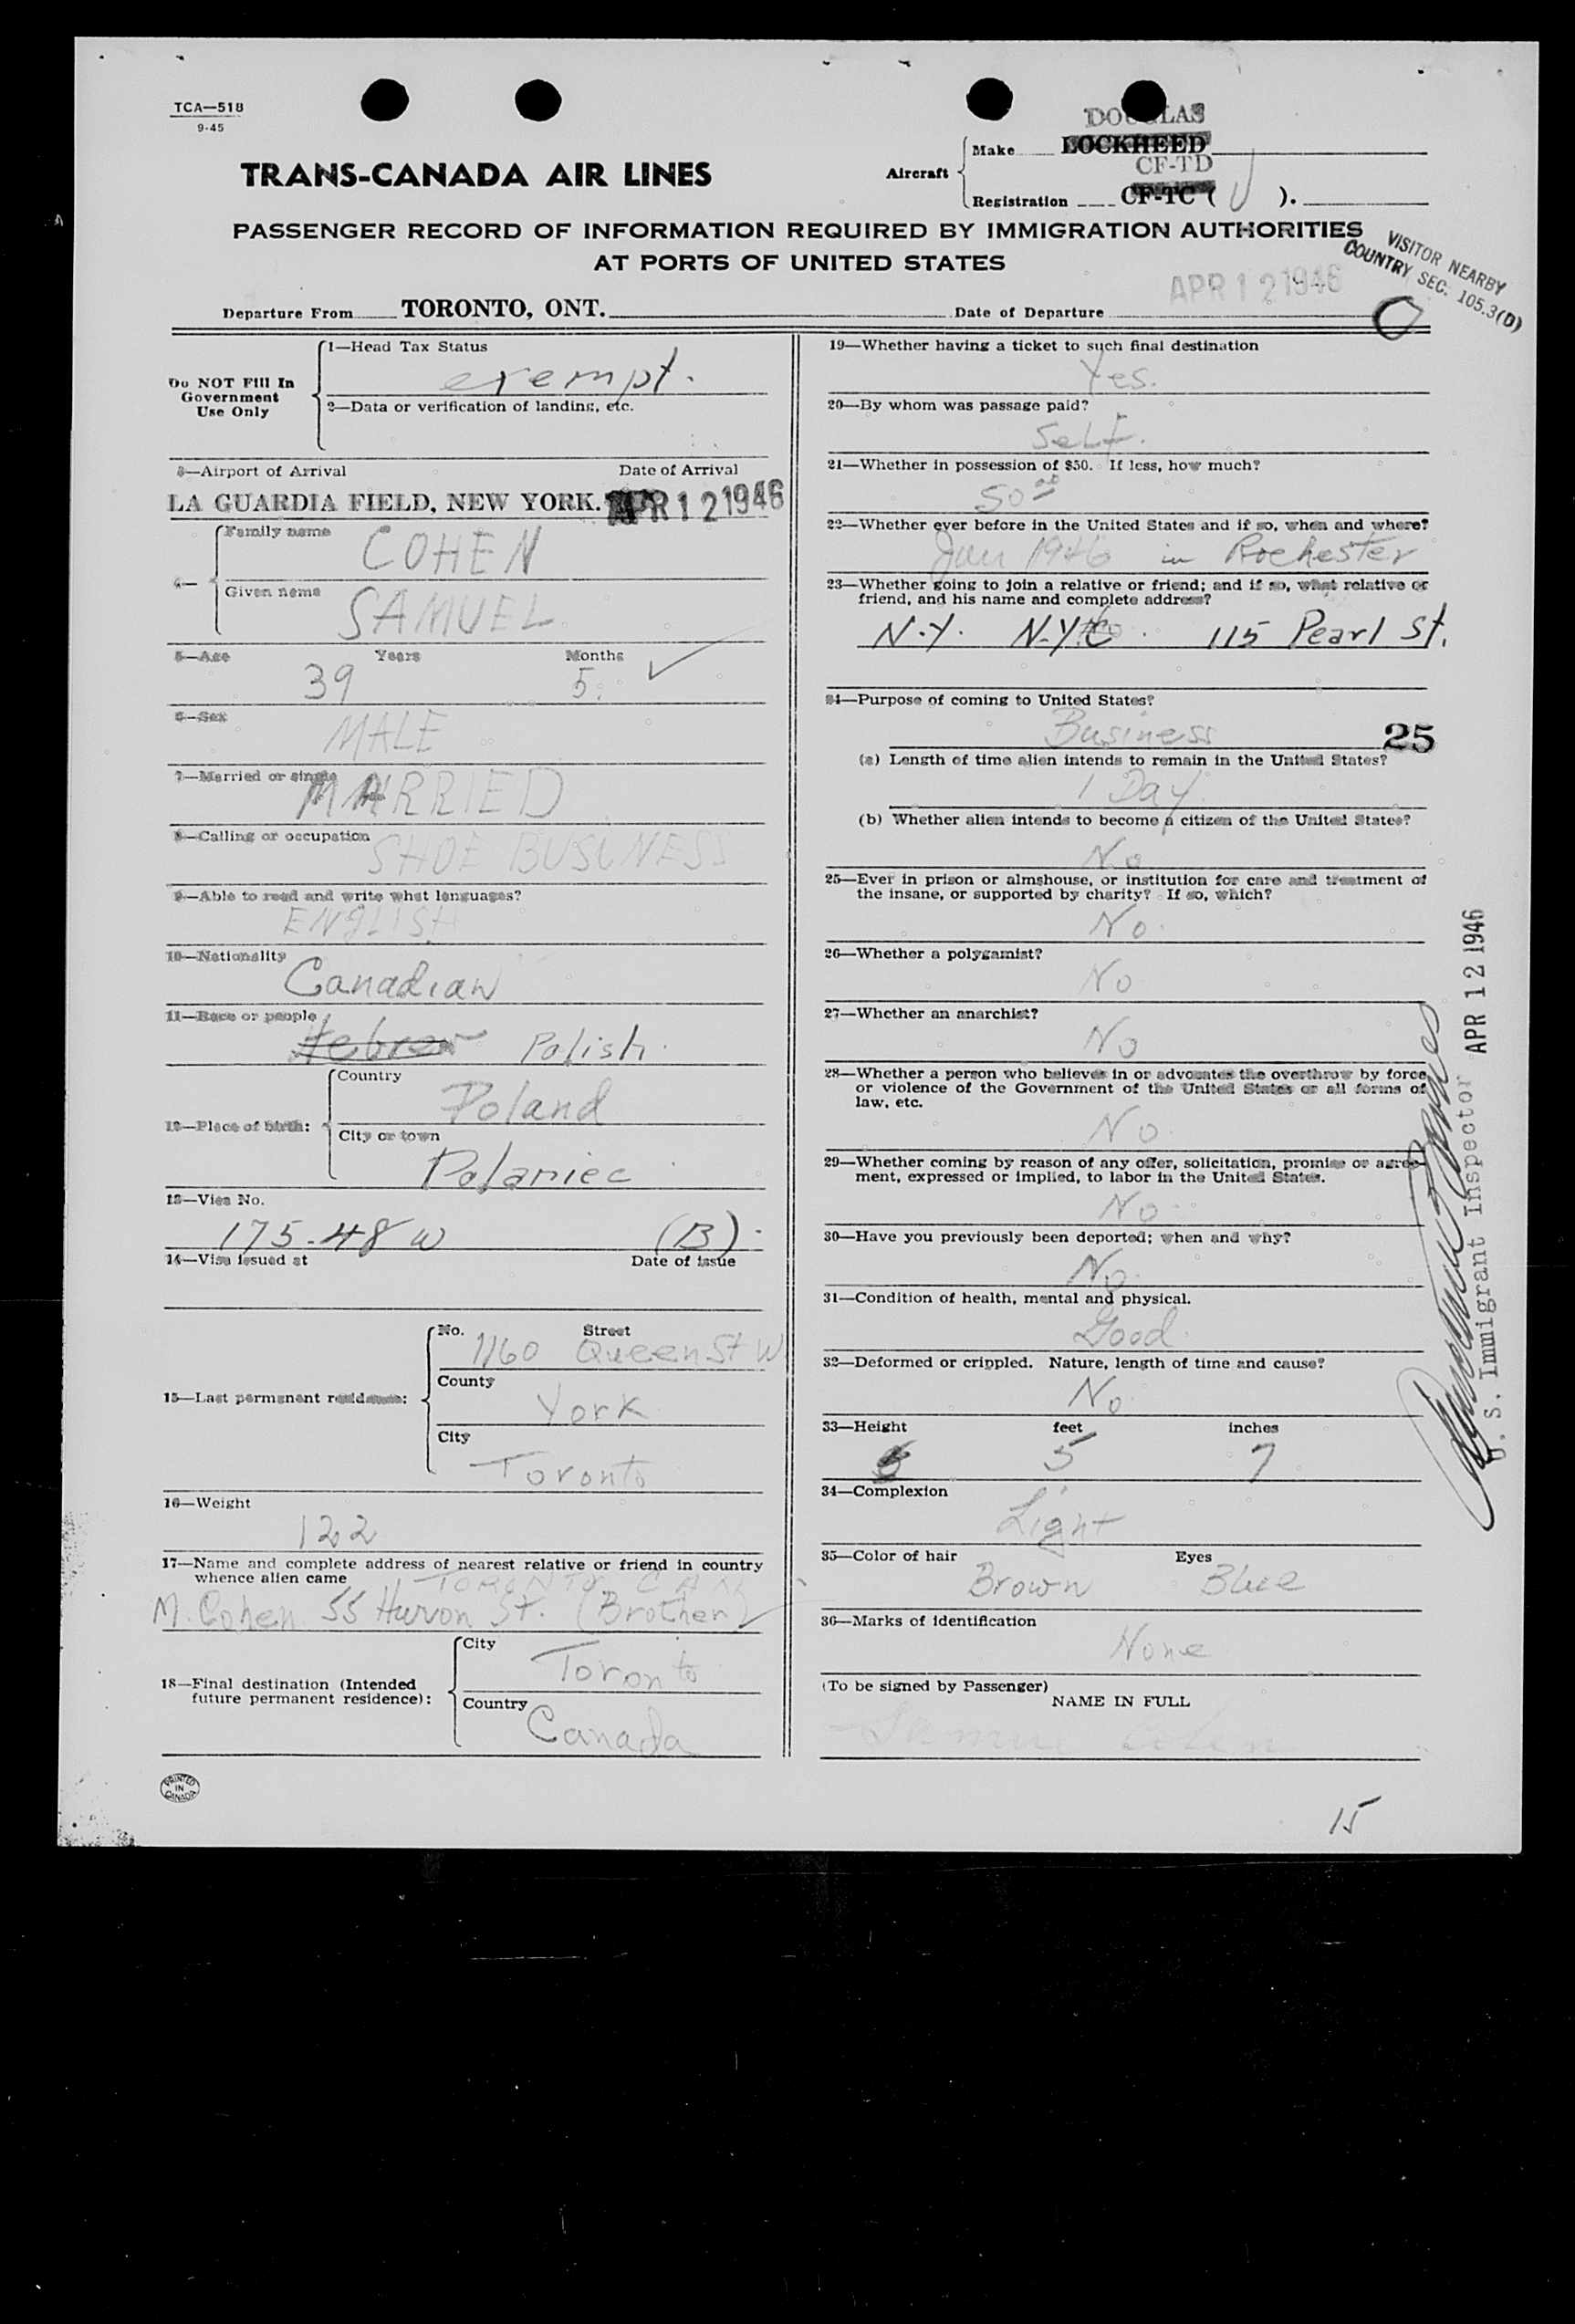 TCA—518
9-45
TRANS-CANADA AIR LINES
Aircraft
DOUGLAS
Make LOCKHEED
CF-TD
Registration CF-TC ( U ).
PASSENGER RECORD OF INFORMATION REQUIRED BY IMMIGRATION AUTHORITIES
AT PORTS OF UNITED STATES
VISITOR NEARBY
COUNTRY SEC. 105.3(D)
APR 12 1946
Departure From TORONTO, ONT. Date of Departure
Do NOT Fill In
Government
Use Only
1—Head Tax Status
exempt.
2—Data or verification of landing, etc.
3—Airport of Arrival Date of Arrival
LA GUARDIA FIELD, NEW YORK. APR 12 1946
4—
Family name
COHEN
Given name
SAMUEL
5—Age Years Months
39 5.
6—Sex
MALE
7—Married or single
MARRIED
8—Calling or occupation
SHOE BUSINESS
9—Able to read and write what languages?
ENGLISH
10—Nationality
Canadian
11—Race or people
Hebrew Polish.
12—Place of birth:
Country
Poland
City or town
Polaniec
13—Visa No.
175-48 W (B).
14—Visa issued at Date of issue
15—Last permanent residence:
No. Street
1160 Queen St W
County
York
City
Toronto
16—Weight
122
17—Name and complete address of nearest relative or friend in country
whence alien came TORONTO CAN
M. Cohen 55 Huron St. (Brother)
18—Final destination (Intended
future permanent residence):
City
Toronto
Country
Canada
PRINTED
IN
CANADA
19—Whether having a ticket to such final destination
Yes.
20—By whom was passage paid?
Self.
21—Whether in possession of $50. If less, how much?
50 00
22—Whether ever before in the United States and if so, when and where?
Jan 1946 in Rochester
23—Whether going to join a relative or friend; and if so, what relative or
friend, and his name and complete address?
N.Y. N.Y.C. 115 Pearl St.
24—Purpose of coming to United States?
Business 25
(a) Length of time alien intends to remain in the United States?
1 Day
(b) Whether alien intends to become a citizen of the United States?
No
25—Ever in prison or almshouse, or institution for care and treatment of
the insane, or supported by charity? If so, which?
No.
26—Whether a polygamist?
No
27—Whether an anarchist?
No
28—Whether a person who believes in or advocates the overthrow by force
or violence of the Government of the United States or all forms of
law, etc.
No
29—Whether coming by reason of any offer, solicitation, promise or agree-
ment, expressed or implied, to labor in the United States.
No
30—Have you previously been deported; when and why?
No.
31—Condition of health, mental and physical.
Good
32—Deformed or crippled. Nature, length of time and cause?
No
33—Height feet inches
5 7
34—Complexion
Light
35—Color of hair Eyes
Brown Blue
36—Marks of identification
None
(To be signed by Passenger)
NAME IN FULL
Samuel Cohen
U. S. Immigrant Inspector APR 12 1946
15